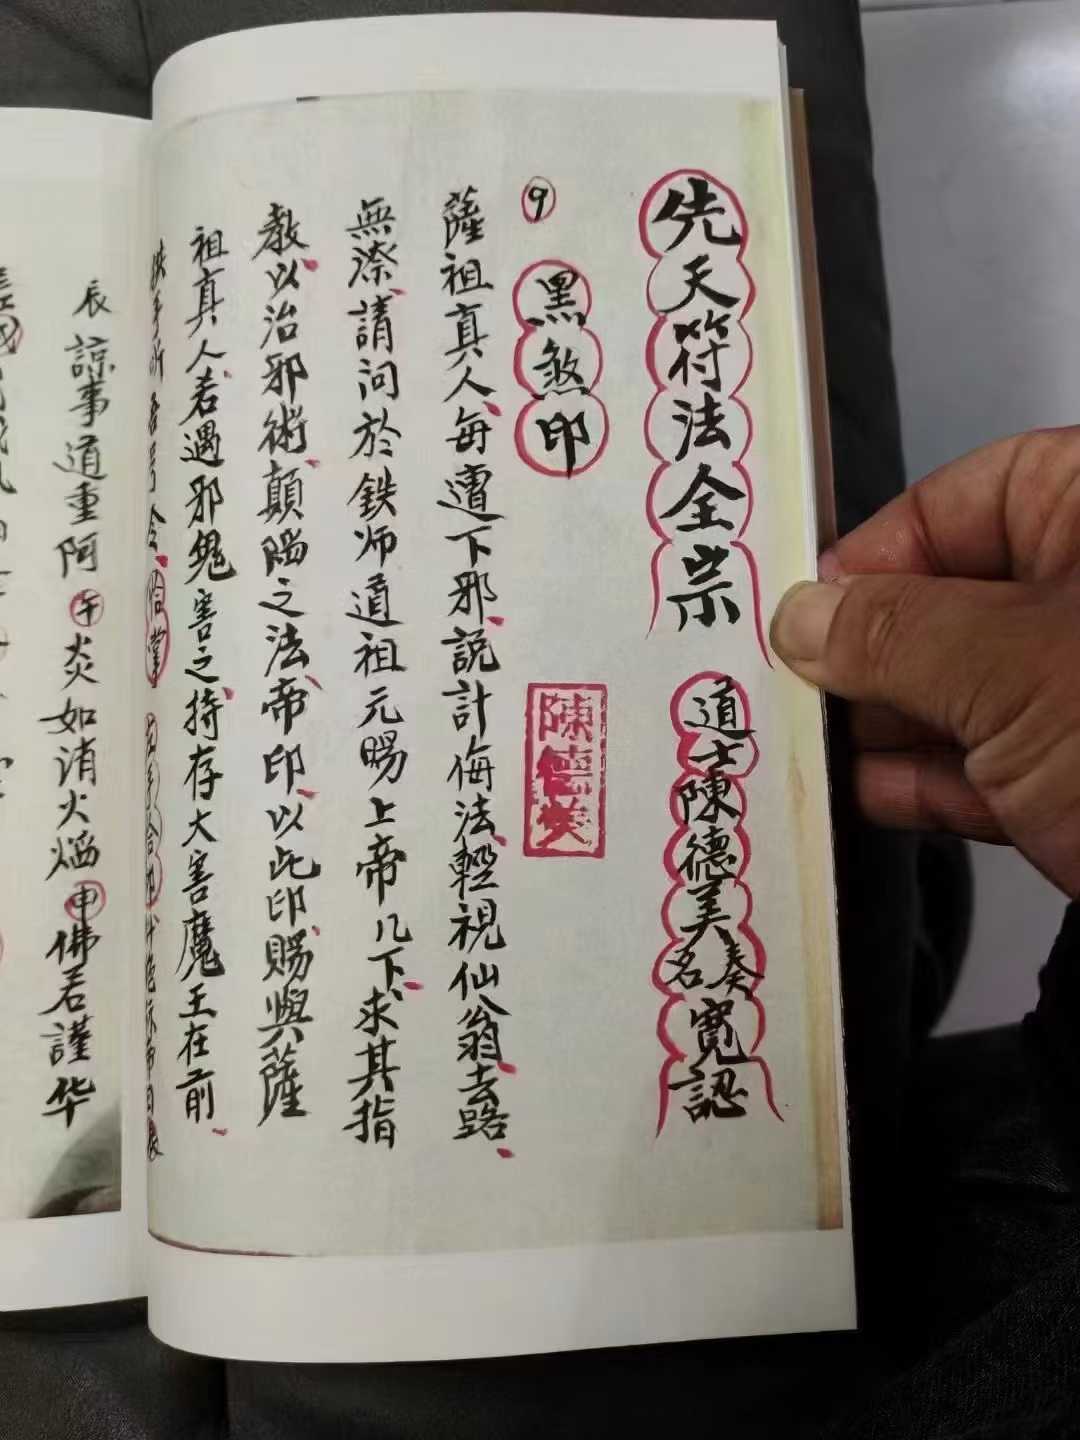 先天符法全宗
道士陳德美奏名寛認
9 黑煞印
陳德美
薩祖真人、每遭下邪、説計侮法、輕視仙翁、去路、
無漈、請问於鉄师道祖元賜上帝几下、求其指
教、以治邪術、顛賜之法、帝印、以此印、賜與薩
祖真人、若遇邪鬼害之、持存大害魔王在前、
辰 諒事道重阿 午 炎如消火焰 申 佛若謹华